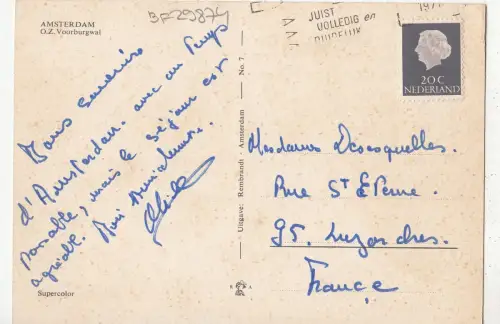 AMSTERDAM
O.Z. Voorburgwal
BF29874
JUIST
VOLLEDIG en
DUIDELIJK
197
20 C
NEDERLAND
Bons souvenirs
d'Amsterdam. avec un temps
passable, mais le séjour est
agréable.
Supercolor
Uitgave: Rembrandt Amsterdam No. 7
R A
Mesdames
Rue St
95. Luzarches.
France